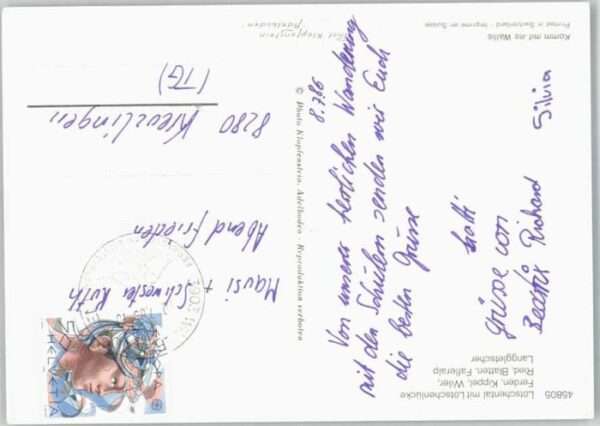 45805
Lötschental mit Lötschenlücke
Ferden, Kippel, Wiler,
Ried, Blatten, Fafleralp
Langgletscher
Komm mit ins Wallis
Printed in Switzerland - Imprimé en Suisse
© Photo Klopfenstein, Adelboden - Reproduktion verboten
8.7.86
Von unserer herrlichen Wanderung
mit den Schülern senden wir Euch
die besten Grüsse
Grüsse von
Beatrix Richard Silvia
Mausi + Schwester Ruth
Abendfrieden
8280 Kreuzlingen
(TG)
HELVETIA